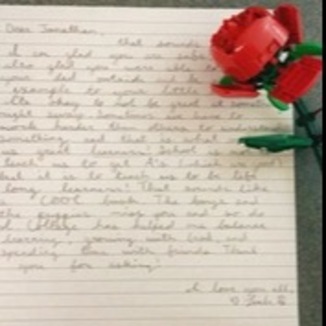 Dear Jonathan,
that sounds
I am glad you are safe
also glad you were able
your dad outside and be
example to your little
Its okay to not be good at som
right away sometimes we have to
work harder than others to
something and that is what
a great learners! School
teach us to get it's
but it is to teach us to be life
long learners! That sounds like
a COOL book. The boys and
the puppies miss you and so do
I College has helped me balance
learning, growing with God, and
spending time with friends Thank
you for asking!
I love you all,